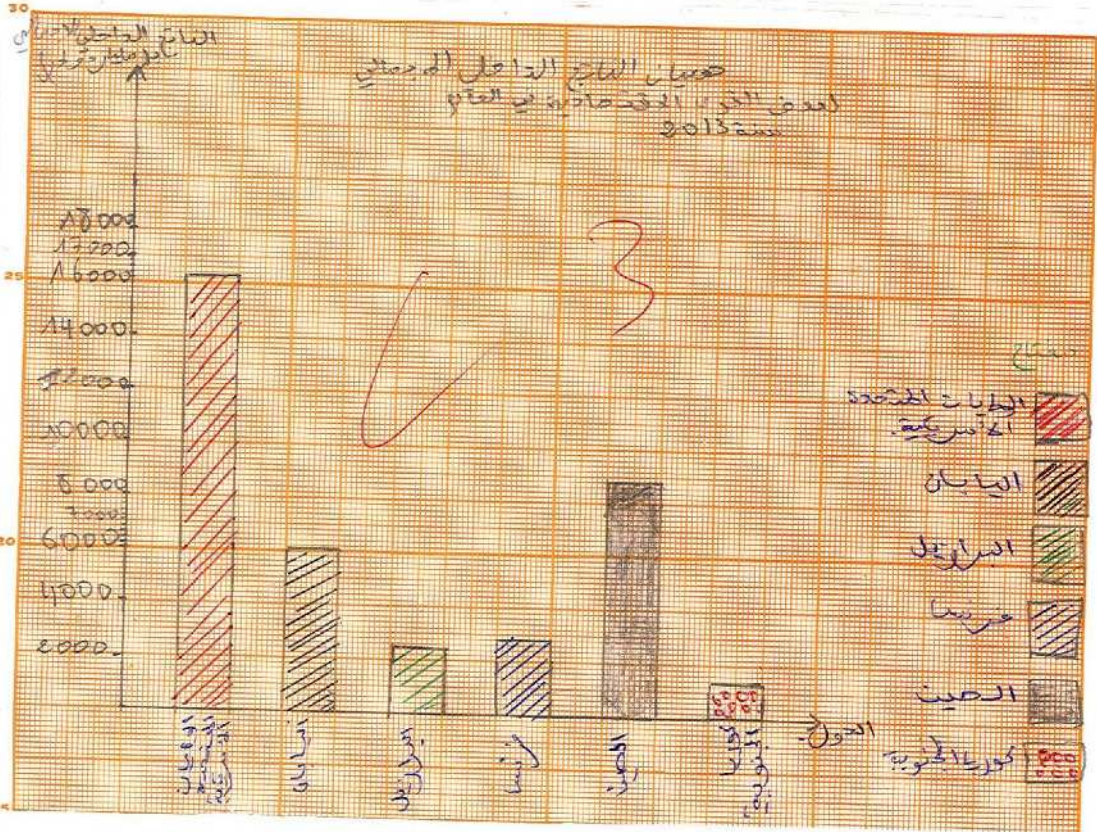 30
الناتج الداخلي الاجمالي
مبيان الناتج الداخلي الاجمالي
لبعض القوى الاقتصادية في العالم
سنة 2013
18000
17000
16000
25
14000
12000
10000
8000
7000
6000
20
4000
2000
3
مفتاح
الولايات المتحدة
الأمريكية
اليابان
البرازيل
فرنسا
الصين
كوريا الجنوبية
الولايات
المتحدة
الأمريكية
اليابان
البرازيل
فرنسا
الصين
كوريا
الجنوبية
الدول